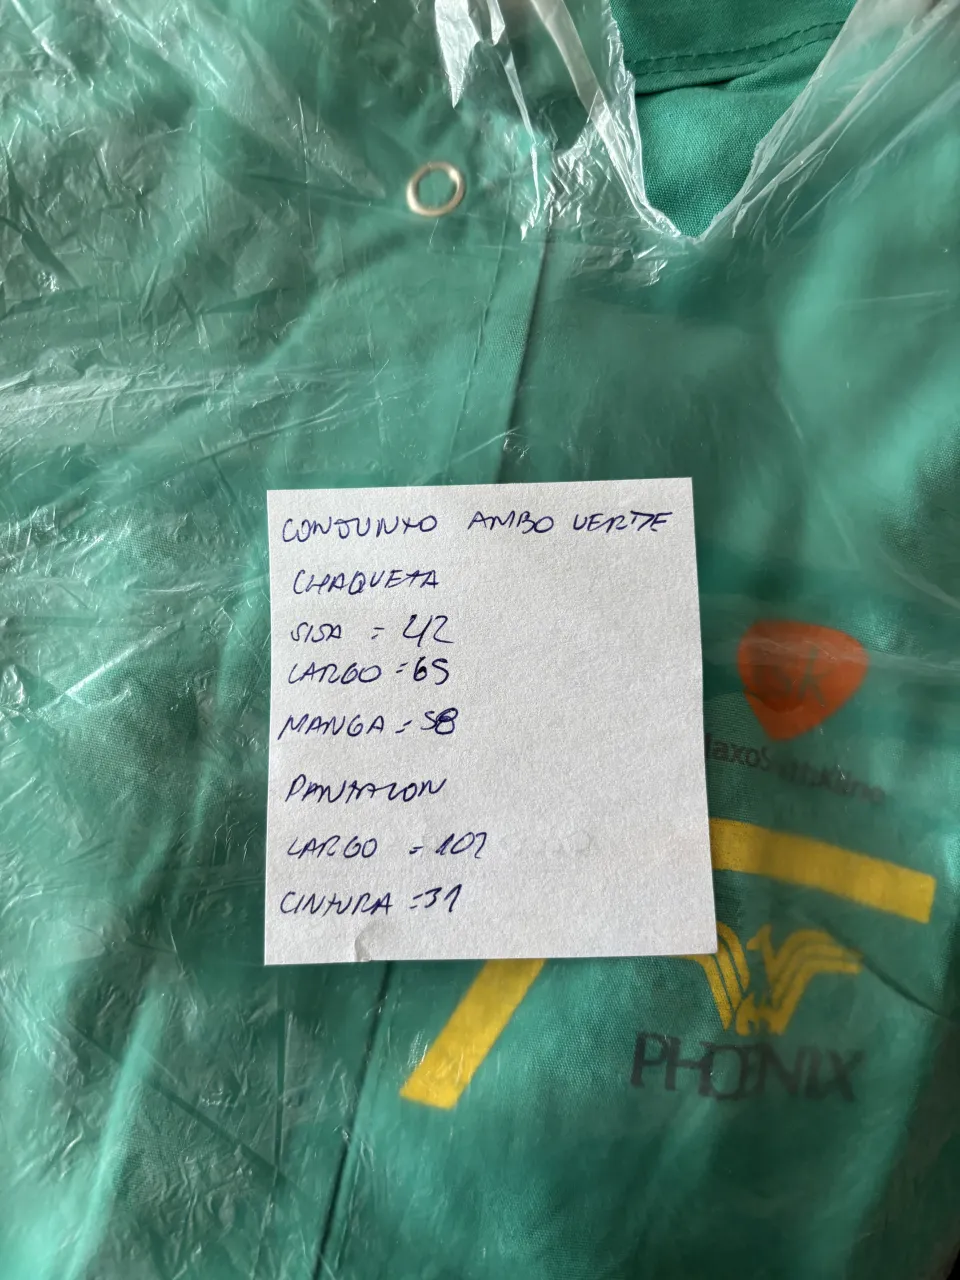 CONJUNTO AMBO VERDE
CHAQUETA
SISA = 42
LARGO = 65
MANGA = 58
PANTALON
LARGO = 102
CINTURA = 31
gsk
laxoSmithKline
PHOENIX